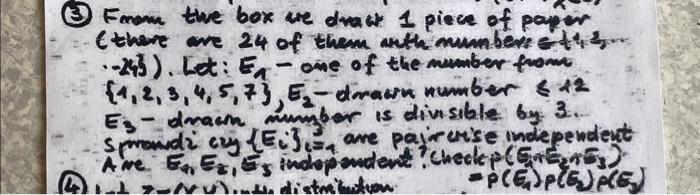 ③ From the box we draw 1 piece of paper
(there are 24 of them with numbers {1,2,
..-24}). Let: E₁ - one of the number from
{1,2,3,4,5,7}, E₂ - drawn number ≤ 12
E₃ - drawn number is divisible by 3.
Sprawdź czy {Eᵢ}³ᵢ₌₁ are pairwise independent
Are E₁, E₂, E₃ independent? Check p(E₁∩E₂∩E₃)
④ =p(E₁)p(E₂)p(E₃)
distribution